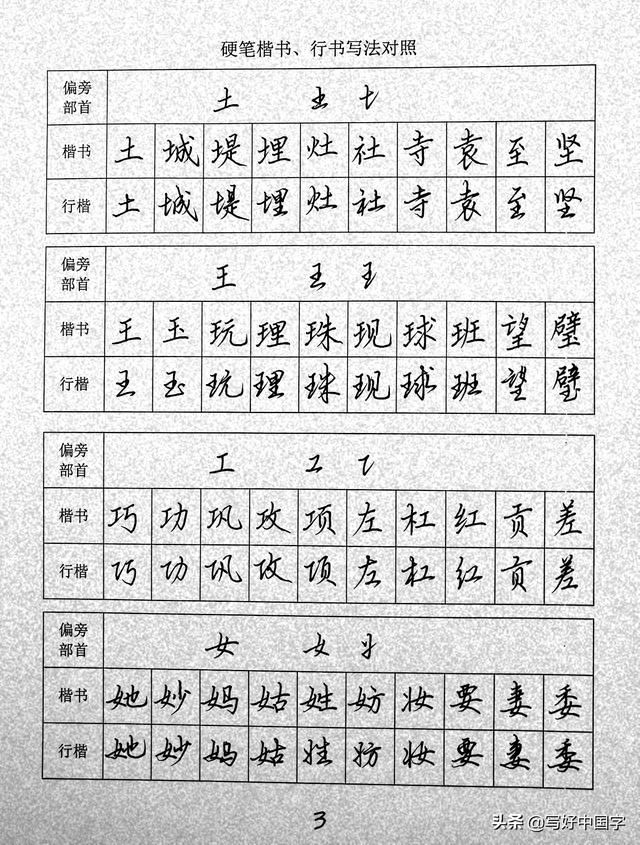 硬笔楷书、行书写法对照
偏旁部首 土 土 土
楷书 土 城 堤 埋 灶 社 寺 袁 至 坚
行楷 土 城 堤 埋 灶 社 寺 袁 至 坚
偏旁部首 王 王 王
楷书 王 玉 玩 理 珠 现 球 班 望 璧
行楷 王 玉 玩 理 珠 现 球 班 望 璧
偏旁部首 工 工 工
楷书 巧 功 巩 攻 项 左 杠 红 贡 差
行楷 巧 功 巩 攻 项 左 杠 红 贡 差
偏旁部首 女 女 女
楷书 她 妙 妈 姑 姓 妨 妆 要 妻 委
行楷 她 妙 妈 姑 姓 妨 妆 要 妻 委
3
头条 @写好中国字